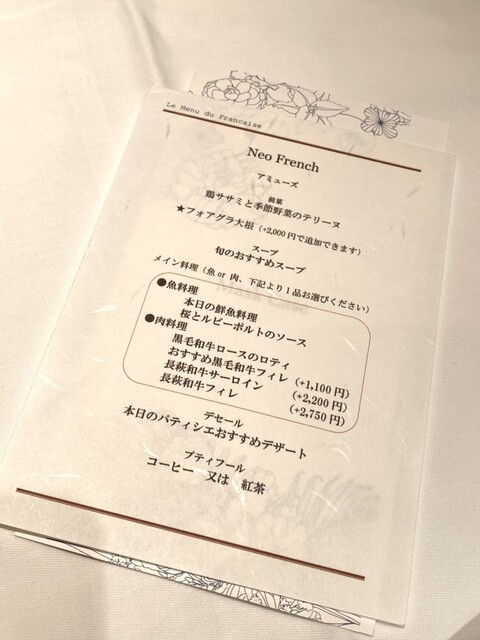 Le Menu du Francaise
Neo French
アミューズ
前菜
鶏ササミと季節野菜のテリーヌ
★フォアグラ大根（+2,000円で追加できます）
スープ
旬のおすすめスープ
メイン料理（魚 or 肉、下記より1品お選びください）
●魚料理
本日の鮮魚料理
桜とルビーポルトのソース
●肉料理
黒毛和牛ロースのロティ
おすすめ黒毛和牛フィレ（+1,100円）
長萩和牛サーロイン （+2,200円）
長萩和牛フィレ （+2,750円）
デセール
本日のパティシエおすすめデザート
プティフール
コーヒー 又は 紅茶